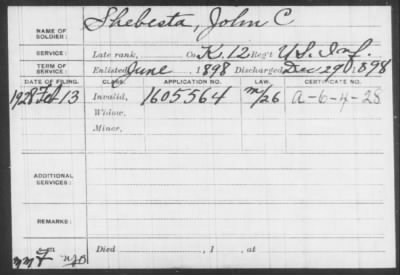 NAME OF SOLDIER: Shebesta, John C
SERVICE: Late rank, Co. K, 12 Reg't U.S. Inf.
TERM OF SERVICE: Enlisted June, 1898 Discharged Dec 29, 1898
DATE OF FILING. CLASS. APPLICATION NO. LAW. CERTIFICATE NO.
1928 Feb 13 Invalid, 1605564 m/26 A-6-4-28
Widow,
Minor,
ADDITIONAL SERVICES:
REMARKS:
Died , 1 , at